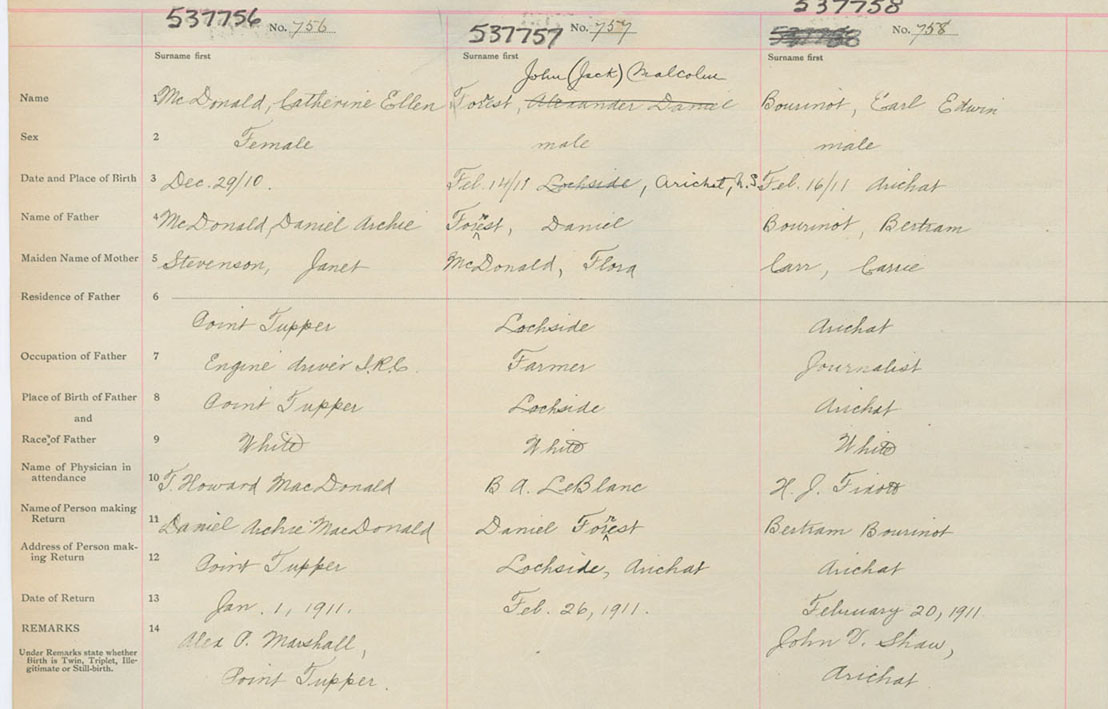 537756 No. 756 537757 No. 757 537758 No. 758
Surname first Surname first Surname first
John (Jack) Malcolm
Name 1 McDonald, Catherine Ellen Forest, Alexander Daniel Bourinot, Earl Edwin
Sex 2 Female male male
Date and Place of Birth 3 Dec. 29/10. Feb. 14/11 Lochside, Arichat, N.S. Feb. 16/11 Arichat
Name of Father 4 McDonald, Daniel Archie Forest, Daniel Bourinot, Bertram
Maiden Name of Mother 5 Stevenson, Janet McDonald, Flora Carr, Carrie
Residence of Father 6
Point Tupper Lochside Arichat
Occupation of Father 7 Engine driver I.R.C. Farmer Journalist
Place of Birth of Father 8 Point Tupper Lochside Arichat
and
Race of Father 9 White White White
Name of Physician in
attendance 10 T. Howard MacDonald B. A. LeBlanc H. J.
Name of Person making
Return 11 Daniel Archie MacDonald Daniel Forest Bertram Bourinot
Address of Person mak-
ing Return 12 Point Tupper Lochside, Arichat Arichat
Date of Return 13 Jan. 1, 1911. Feb. 26, 1911. February 20, 1911.
REMARKS 14 Alex P. Marshall, John V. Shaw,
Under Remarks state whether
Birth is Twin, Triplet, Ille-
gitimate or Still-birth.
Point Tupper. Arichat